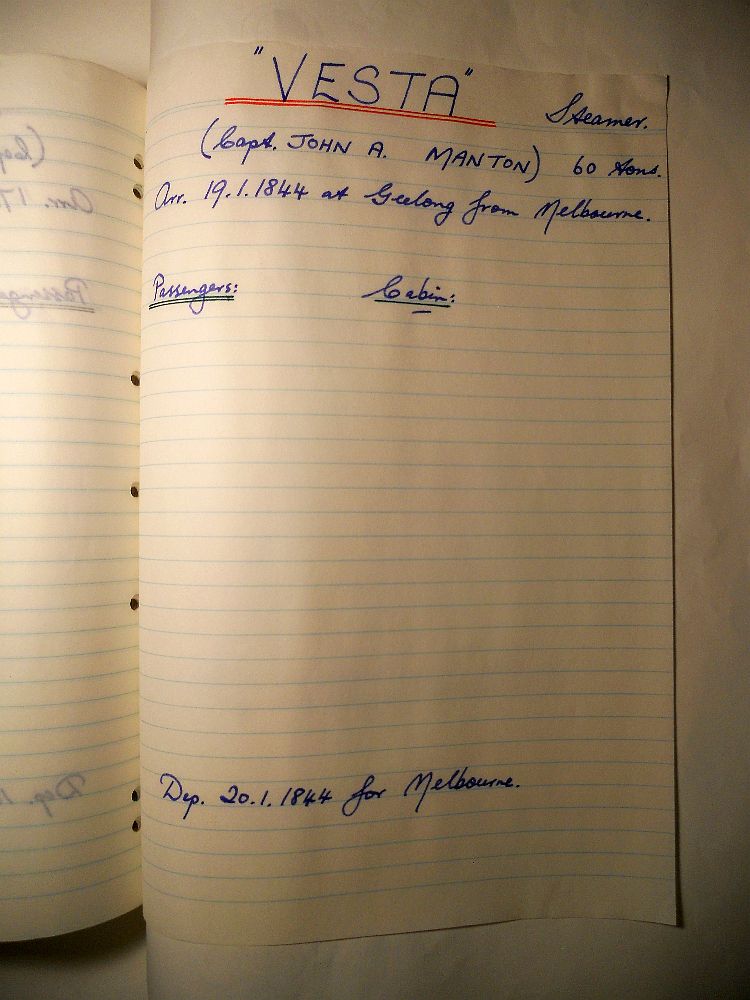 "VESTA" Steamer.
(Capt. JOHN A. MANTON) 60 tons.
Arr. 19.1.1844 at Geelong from Melbourne.
Passengers: Cabin:
Dep. 20.1.1844 for Melbourne.